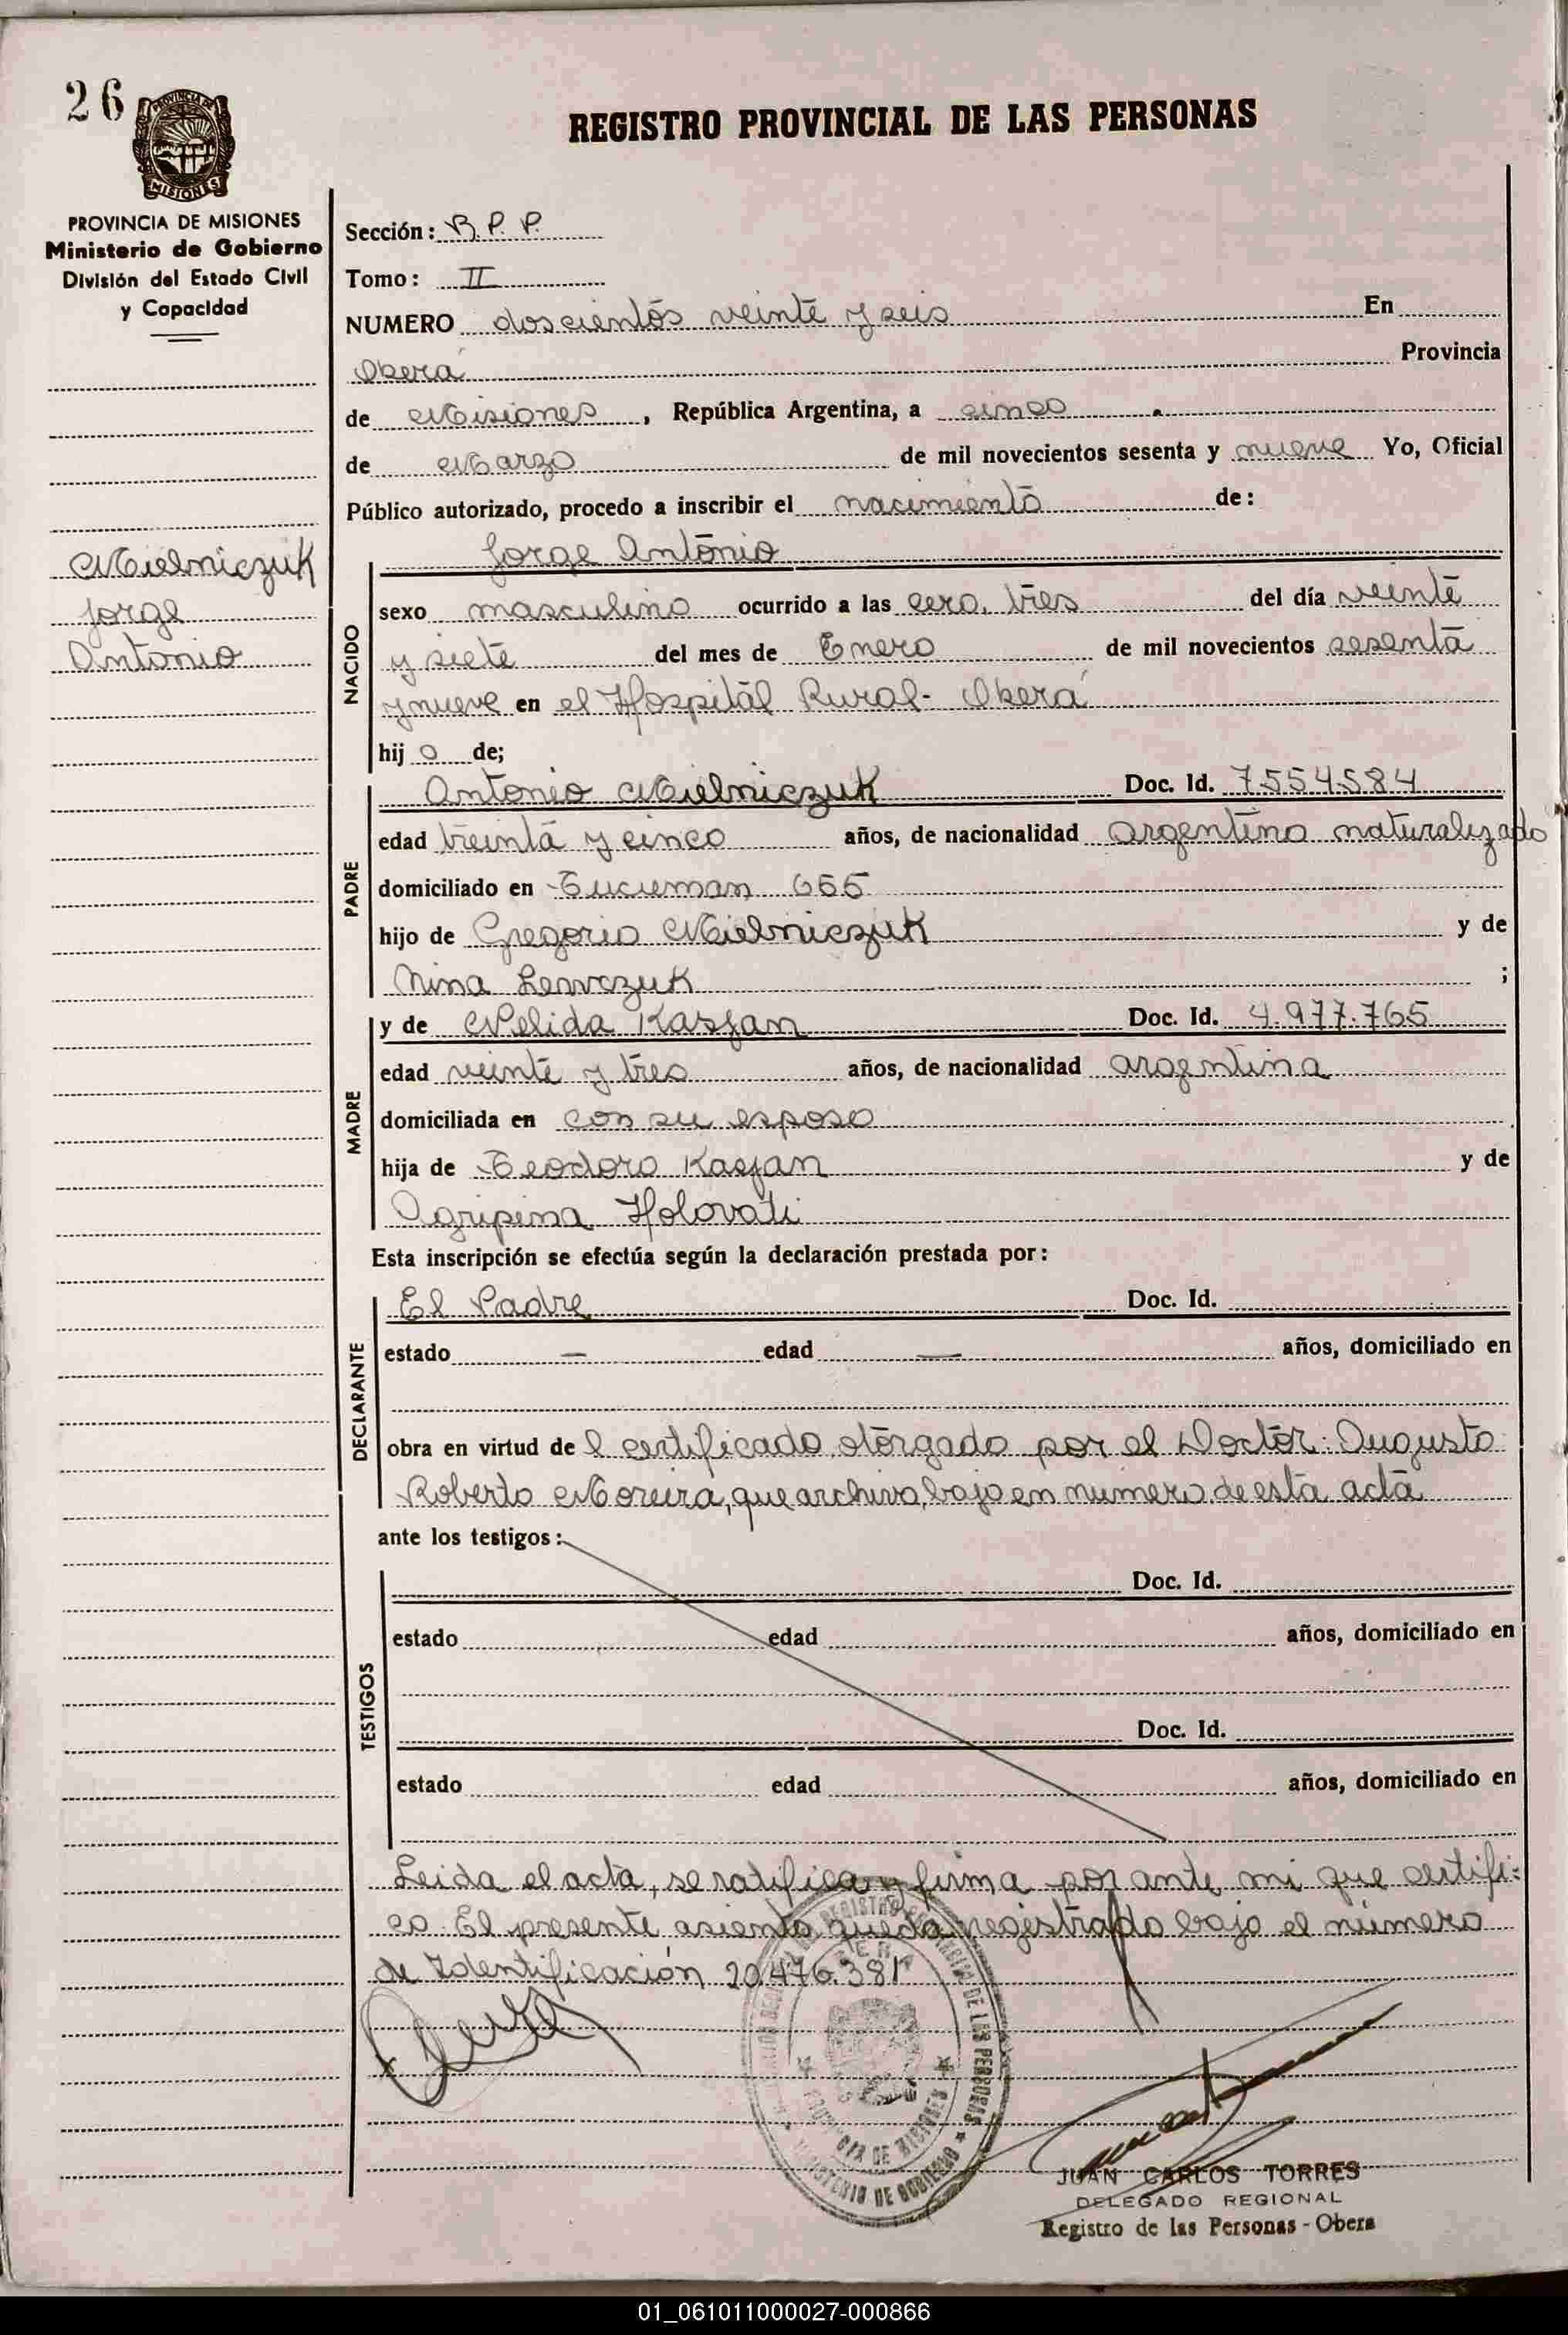 26
PROVINCIA DE MISIONES
Ministerio de Gobierno
División del Estado Civil
y Capacidad
Mielniczuk
Jorge
Antonio
REGISTRO PROVINCIAL DE LAS PERSONAS
Sección: R. P. P.
Tomo: II
NUMERO doscientos veinte y seis En
Oberá Provincia
de Misiones, República Argentina, a cinco
de Marzo de mil novecientos sesenta y nueve Yo, Oficial
Público autorizado, procedo a inscribir el nacimiento de:
Jorge Antonio
NACIDO
sexo masculino ocurrido a las cero, tres del día veinte
y siete del mes de Enero de mil novecientos sesenta
y nueve en el Hospital Rural - Oberá
hij o de;
PADRE
Antonio Mielniczuk Doc. Id. 7.554.584
edad treinta y cinco años, de nacionalidad argentino naturalizado
domiciliado en Tucuman 655
hijo de Gregorio Mielniczuk y de
Nina Lewczuk ;
MADRE
y de Nelida Kasjan Doc. Id. 4.977.765
edad veinte y tres años, de nacionalidad argentina
domiciliada en con su esposo
hija de Teodoro Kasjan y de
Agripina Holovati
Esta inscripción se efectúa según la declaración prestada por:
DECLARANTE
El Padre Doc. Id.
estado — edad — años, domiciliado en
obra en virtud de l certificado otorgado por el Doctor: Augusto
Roberto Moreira, que archivo, bajo en numero de esta acta
ante los testigos:
TESTIGOS
Doc. Id.
estado edad años, domiciliado en
Doc. Id.
estado edad años, domiciliado en
Leida el acta, se ratifica y firma por ante mi que certifi=
co. El presente asiento queda registrado bajo el número
de Identificación 20.476.381
MINISTERIO DE GOBIERNO
PROVINCIA DE MISIONES
JUAN CARLOS TORRES
DELEGADO REGIONAL
Registro de las Personas - Obera
01_061011000027-000866